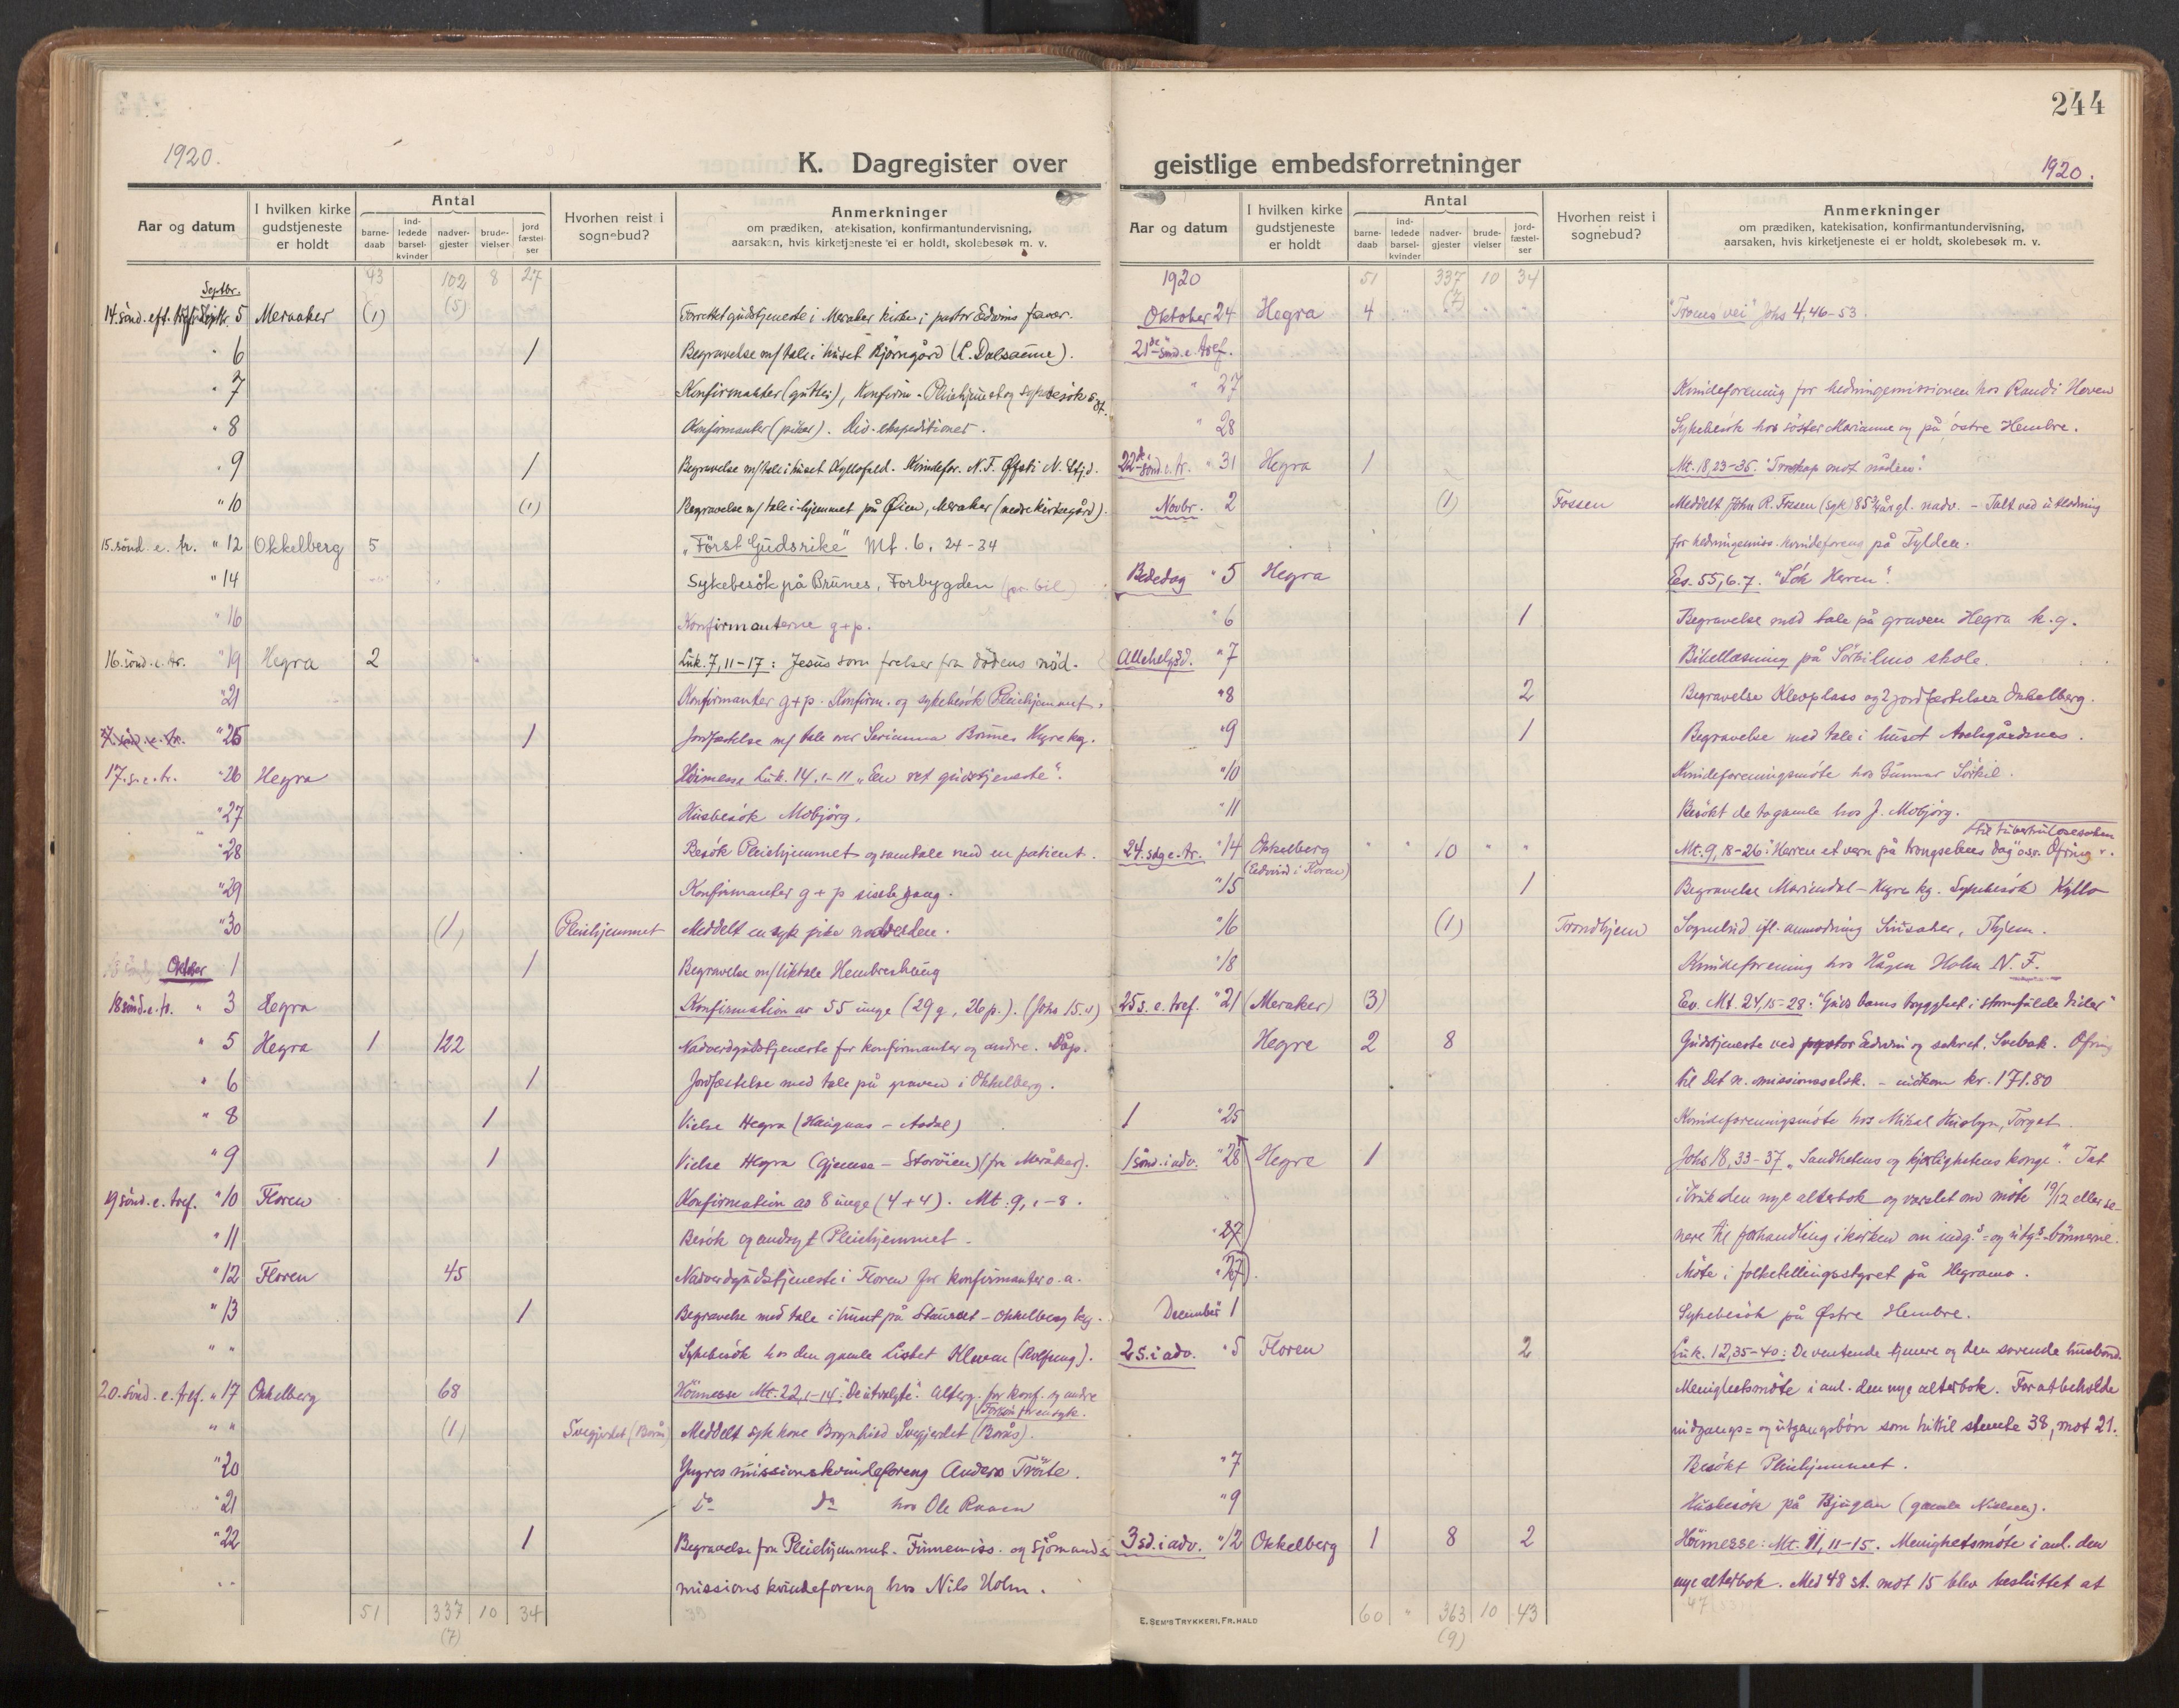 244
1920.
K. Dagregister over geistlige embedsforretninger
1920.
Aar og datum
I hvilken kirke gudstjeneste er holdt
Antal
barne-daab
ind-ledede barsel-kvinder
nadver-gjester
brude-vielser
jord fæstel-ser
Hvorhen reist i sognebud?
Anmerkninger
om prædiken, atekisation, konfirmantundervisning,
aarsaken, hvis kirketjeneste ei er holdt, skolebesøk m. v.
43 102 8 27
(5)
Septbr.
14. sönd. eft. 5 Meraaker (1) Forrettet gudstjeneste i Meraker kirke i pastor Edwins fravær.
" 6 1 Begravelse m/ tale i huset Björngård
" 7 Konfirmanter (gutter), Konfirm. - Pleiehjemst og sykebesök
" 8 Konfirmanter (piker). Div. ekspeditioner.
" 9 1 Begravelse m/ tale i huset Kyllofald. Kvindefor. N. F.
" 10 (1) Begravelse m/ tale i hjemmet på Øien, Meraker (nedre kirkegård).
15. sönd. e. tr. " 12 Okkelberg 5 „Först Guds rike" Mt. 6, 24-34
" 14 Sykebesøk på Brünes, Forbygden (pr. bil)
" 16 Konfirmanterne g + p.
16. sönd. e. tr. " 19 Hegra 2 Luk. 7, 11-17: Jesus som frelser fra dödens nöd.
" 21 Konfirmanter g + p. Konfirm. og sykebesök Pleiehjemmet.
" 25 1 Jordfæstelse m/ tale over Serianna Brünes Hegra kg.
17. s. e. tr. " 26 Hegra Høimesse Luk. 14, 1-11 „En ret gudstjeneste".
" 27 Husbesök Mobjörg.
" 28 Besök Pleiehjemmet og samtale med en patient.
" 29 Konfirmanter g + p siste gang.
" 30 (1) Pleiehjemmet Meddelt en syk pike nadverden.
Oktober 1 1 Begravelse m/ liktale Hembreshaug
18 sönd. e. tr. " 3 Hegra Konfirmation av 55 unge (29 g, 26 p.). (Johs 15.4)
" 5 Hegra 1 122 Nadverdgudstjeneste for konfirmanter og andre. Dåp.
" 6 1 Jordfæstelse med tale på graven i Okkelberg.
" 8 1 Vielse Hegra (Haugnas - Aadal)
" 9 1 Vielse Hegra (Gjemse - Storvien) (fra Meråker).
19 sönd. e. tref. " 10 Floren Konfirmation av 8 unge (4 + 4). Mt. 9, 1-8.
" 11 Besök og andagt Pleiehjemmet.
" 12 Floren 45 Nadverdgudstjeneste i Floren for konfirmanter o. a.
" 13 1 Begravelse med tale i huset på - Okkelberg kg.
" " Sykebesök hos den gamle Lisbet Kleven (Rolfseng).
20. sönd. e. tref. " 17 Okkelberg 68 Höimesse Mt. 22, 1-14: "De utvalgte". Alterg. for konf. og andre
" " (1) Svegjerdet (Borås) Meddelt syk kone Brynhild Svegjerdet (Borås).
" 20 Yngres missionskvindeforeng Anders Trötte.
" 21 do do hos Ole Raaen
" 22 1 Begravelse fra Pleiehjemmet. Finnemiss. og sjömands-
missionskvindeforeng hos Nils Holm.
51 337 10 34
(7)
Aar og datum
I hvilken kirke gudstjeneste er holdt
Antal
barne-daab
ind-ledede barsel-kvinder
nadver-gjester
brude-vielser
jord-fæstel-ser
Hvorhen reist i sognebud?
Anmerkninger
om prædiken, katekisation, konfirmantundervisning,
aarsaken, hvis kirketjeneste ei er holdt, skolebesøk m. v.
1920 51 337 10 34
(7)
Oktober 24 Hegra 4 "Troens vei" Johs 4, 46-53.
21de sönd. e. tref.
" 27 Kvindeforening for hedningemissionen hos Randi Hoven
" 28 Sykebesök hos söster Marianne og på östre Hembre.
22de sönd. e. tr. " 31 Hegra 1 Mt. 18, 23-35. "Troskap mot nåden".
Novbr. 2 (1) Fossen Meddelt John R. Fossen (syk) 85 3/4 år gl. nadv. - Talt ved utlodning
for hedningemiss. kvindeforeng på Fylden.
Bededag " 5 Hegra Es. 55, 6. 7. "Sök Herren".
" 6 1 Begravelse med tale på graven Hegra k. g.
Allehelgsd. " 7 Bibellæsning på Sörkilmo skole.
" 8 2 Begravelse Kleoplass og 2 jordfæstelser Okkelberg.
" 9 1 Begravelse med tale i huset Avelsgårdsnes.
" 10 Kvindeforeningsmöte hos Gunnar Sörkil.
" 11 Besökt de to gamle hos J. Mobjörg.
til tuberkulosesaken
24. sdg e. tr. " 14 Okkelberg 10 Mt. 9, 18-26: "Herren et vern på trængselens dag" osv. Ofring
(Edwin i Floren)
" 15 1 Begravelse Mariendal - Hegra kg. Sykebesök Kyllo
" 16 (1) Trondhjem Sognebud efl. anmodning Sykehuset, Thjem.
" 18 Kvindeforening hos Hågen Holm N. F.
25 s. e. tref. " 21 (Meraker) (3) Ev. Mt. 24, 15-28: "Guds barns tryghet i stormfulde tider"
Hegre 2 8 Gudstjeneste ved pastor Edwin og sekret. Svebak. Ofring
til Det n. missionsselsk. - indkom kr. 171.80
" 25 Kvindeforeningsmöte hos Mikal Husbyn, Torget.
1 sönd. i adv. " 28 Hegre 1 Johs 18, 33-37 „Sandhetens og kjærlighetens konge." Tat
i bruk den nye alterbok og varslet om möte 19/12 eller se-
nere til forhandling i kirken om indg.s= og utg.s-bönnerne.
" 27 Möte i folketellingsstyret på Hegramo.
December 1 Sykebesök på Østre Hembre.
2 s. i adv. " 5 Floren 2 Luk. 12, 35-40: De ventende tjenere og den sovende husbond.
Menighetsmöte i anl. den nye alterbok. For at beholde
indgangs= og utgangsbön som hittil stemte 38, mot 21.
" 7 Besökt Pleiehjemmet.
" 9 Husbesök på Bjugan (gamle Nielsen).
3 sd. i adv. " 12 Okkelberg 1 8 2 Höimesse: Mt. 11, 11-15. Menighetsmöte i anl. den
nye alterbok. Med 48 st. mot 15 blev besluttet at
60 " 363 10 43
(9)
E. SEM'S TRYKKERI, FR.HALD